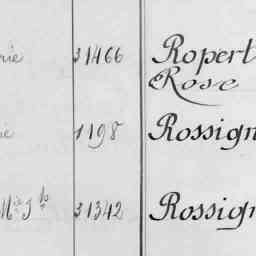 rie 31466 Ropert
Rose
ie 1198 Rossign
Mie Jh 31342 Rossign